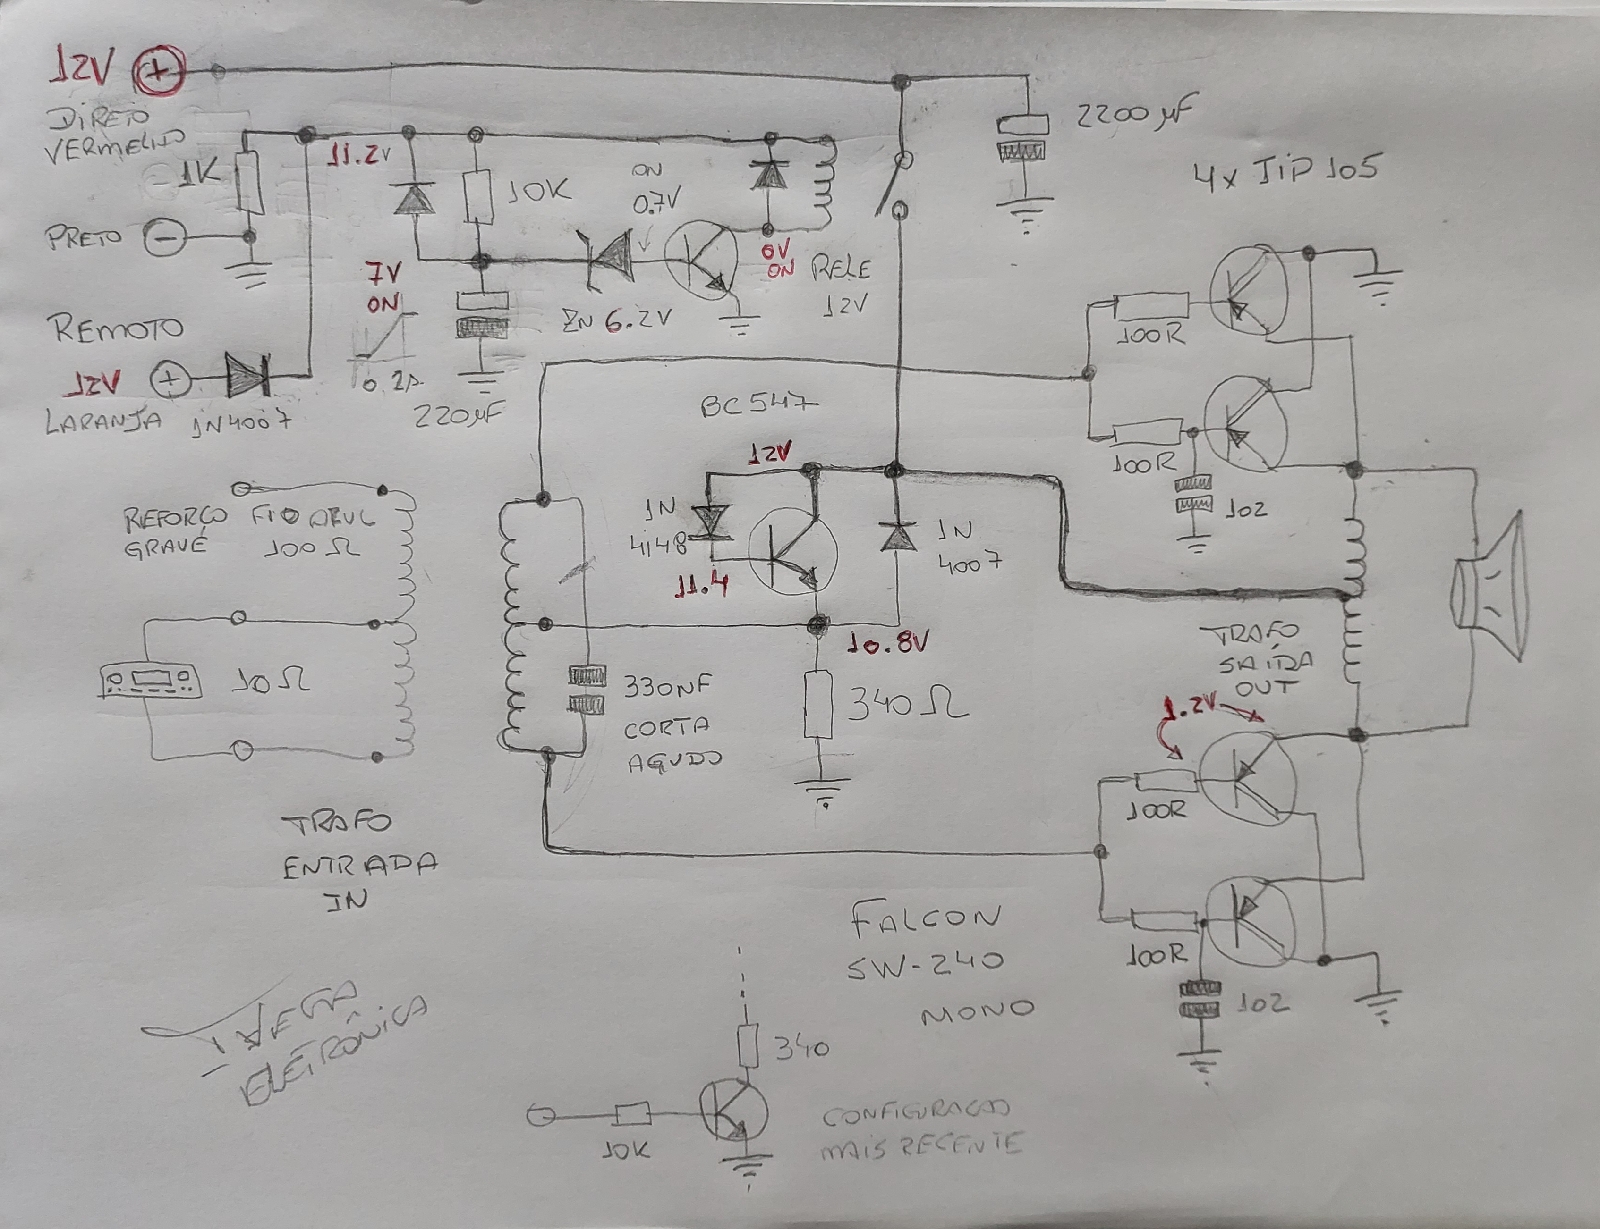 12V +
DIRETO
VERMELHO
1K
11.2V
PRETO -
REMOTO
12V +
LARANJA 1N4007
7V
ON
0.2s
220µF
10K
ON
0.7V
ZN 6.2V
0V
ON
RELE
12V
2200µF
4x TIP 105
100R
100R
102
BC547
12V
1N
4148
11.4
1N
4007
10.8V
340Ω
REFORÇO FIO AZUL
GRAVE 100Ω
10Ω
330NF
CORTA
AGUDO
TRAFO
ENTRADA
IN
TRAFO
SAÍDA
OUT
1.2V
100R
100R
102
FALCON
SW-240
MONO
ELETRÔNICA
340
10K
CONFIGURACAO
MAIS RECENTE